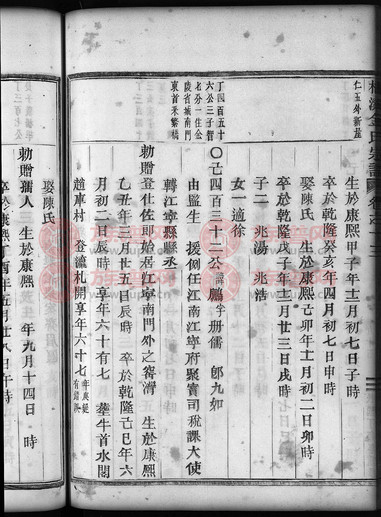 仁玉外新塋
生於康熙甲子年十二月初七日子時
卒於乾隆癸亥年四月初七日申時
娶陳氏 生於康熙己卯年十二月初二日卯時
卒於乾隆戊子年十二月廿三日戌時
子二 兆湯 兆浩
女一適徐
丁四百五十
六公三子智
老分一住金
陵省城南門
東首米繁橋
〇己四百三十二公諱鵬字册儒 郎九如
由監生 援例任江南江寧府聚寶司稅課大使
轉江寧縣縣丞
勅贈登仕佐郎始居江寧南門外之窨灣 生於康熙
己丑年三月廿五日辰時 卒於乾隆己巳年六
月初二日辰時享年六十有七 葬牛首水閣
趙車村 登瀛札開享年六十七
勅贈孺人 生於康熙 年九月十四日 時
卒於康熙丁酉年五月廿八日午時
娶陳氏